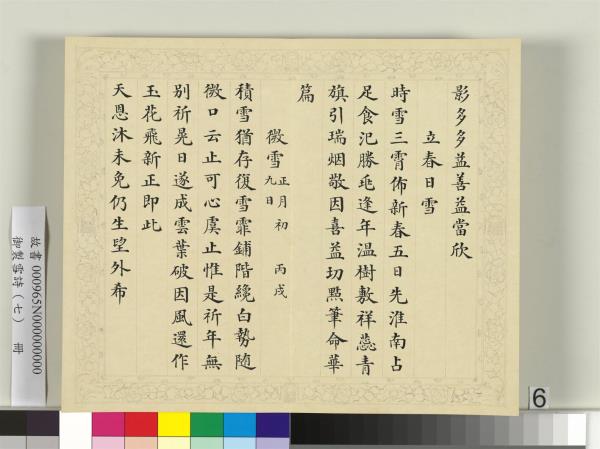 影多多益善益當欣
立春日雪
時雪三霄佈新春五日先淮南占
足食氾勝兆逢年温樹敷祥蕊青
旗引瑞烟敬因喜益切㸃筆命華
篇
微雪正月初九日 丙戌
積雪猶存復雪霏鋪階纔白勢隨
微口云止可心虞止惟是祈年無
别祈晃日遂成雲葉破因風還作
玉花飛新正即此
天恩沐未免仍生望外希
故書 000965N000000000
御製雪詩（七） 冊
6